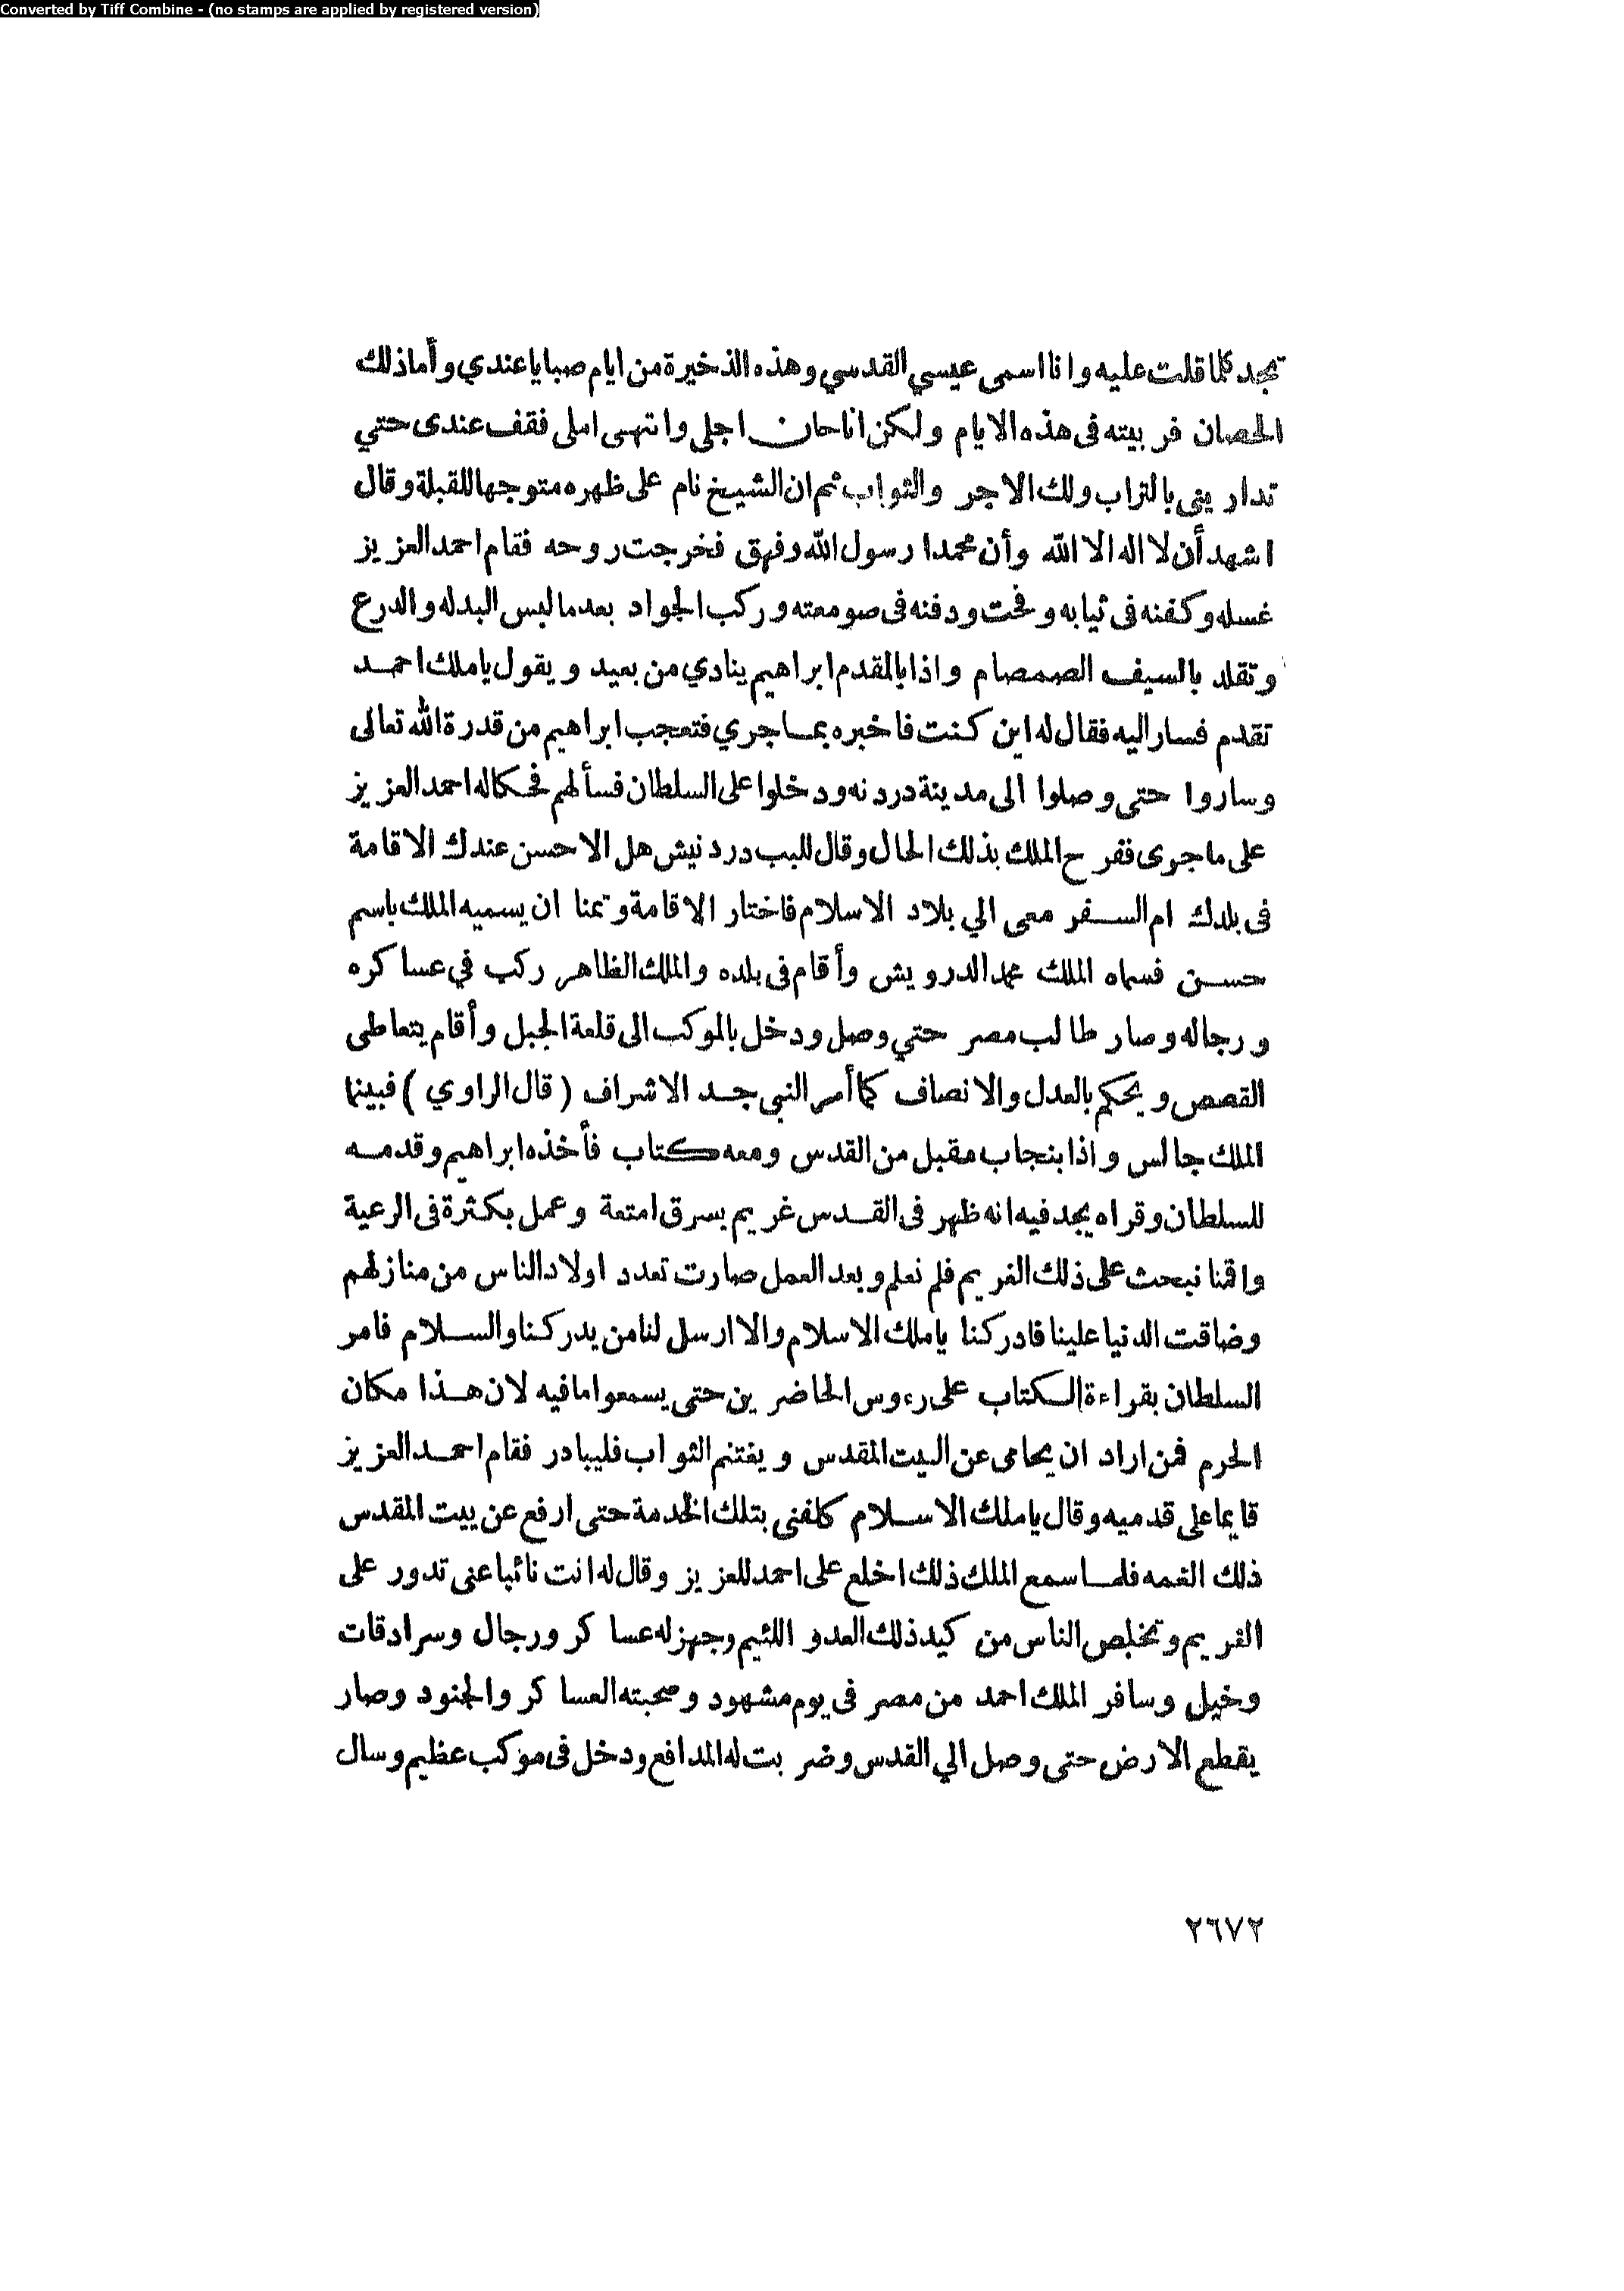 Converted by Tiff Combine - (no stamps are applied by registered version)
تجد كلما قلت عليه وانا اسمى عيسي القدسي وهذه الذخيرة من ايام صبايا عندي وأما ذلك
الحصان فربيته فى هذه الايام ولكن انا حان اجلى وانتهى املى فقف عندى حتي
تدارينى بالتراب ولك الاجر والثواب ثم ان الشيخ نام على ظهره متوجها للقبلة وقال
اشهد أن لا اله الا الله وأن محمدا رسول الله وفهق فخرجت روحه فقام احمد العزيز
غسله وكفنه فى ثيابه وفحت ودفنه فى صومعته وركب الجواد بعد ما لبس البدله والدرع
وتقلد بالسيف الصمصام واذا بالمقدم ابراهيم ينادي من بعيد ويقول يا ملك احمد
تقدم فسار اليه فقال له اين كنت فاخبره بما جري فتعجب ابراهيم من قدرة الله تعالى
وساروا حتى وصلوا الى مدينة دردنه ودخلوا على السلطان فسألهم فحكا له احمد العزيز
على ما جرى ففرح الملك بذلك الحال وقال للبب دردنيش هل الاحسن عندك الاقامة
فى بلدك ام السفر معى الي بلاد الاسلام فاختار الاقامة وتمنا ان يسميه الملك باسم
حسن فسماه الملك محمد الدرويش وأقام فى بلده والملك الظاهر ركب في عساكره
ورجاله وصار طالب مصر حتي وصل ودخل بالموكب الى قلعة الجبل وأقام يتعاطى
القصص ويحكم بالعدل والانصاف كما أمر النبى جد الاشراف ( قال الراوي ) فبينما
الملك جالس واذا بنجاب مقبل من القدس ومعه كتاب فأخذه ابراهيم وقدمه
للسلطان وقراه يجد فيه انه ظهر فى القدس غريم يسرق امتعة وعمل بكثرة فى الرعية
واقمنا نبحث على ذلك الغريم فلم نعلم وبعد العمل صارت تعدد اولاد الناس من منازلهم
وضاقت الدنيا علينا فادركنا يا ملك الاسلام والا ارسل لنا من يدركنا والسلام فامر
السلطان بقراءة الكتاب على رءوس الحاضرين حتى يسمعوا ما فيه لان هذا مكان
الحرم فمن اراد ان يحامى عن البيت المقدس ويغتنم الثواب فليبادر فقام احمد العزيز
قايما على قدميه وقال يا ملك الاسلام كلفنى بتلك الخدمة حتى ارفع عن بيت المقدس
ذلك الغمه فلما سمع الملك ذلك اخلع على احمد للعزيز وقال له انت نائبا عنى تدور على
الغريم وتخلص الناس من كيد ذلك العدو اللئيم وجهز له عساكر ورجال وسرادقات
وخيل وسافر الملك احمد من مصر فى يوم مشهود وصحبته العساكر والجنود وصار
يقطع الارض حتى وصل الي القدس وضربت له المدافع ودخل فى موكب عظيم وسال
٢٦٧٢